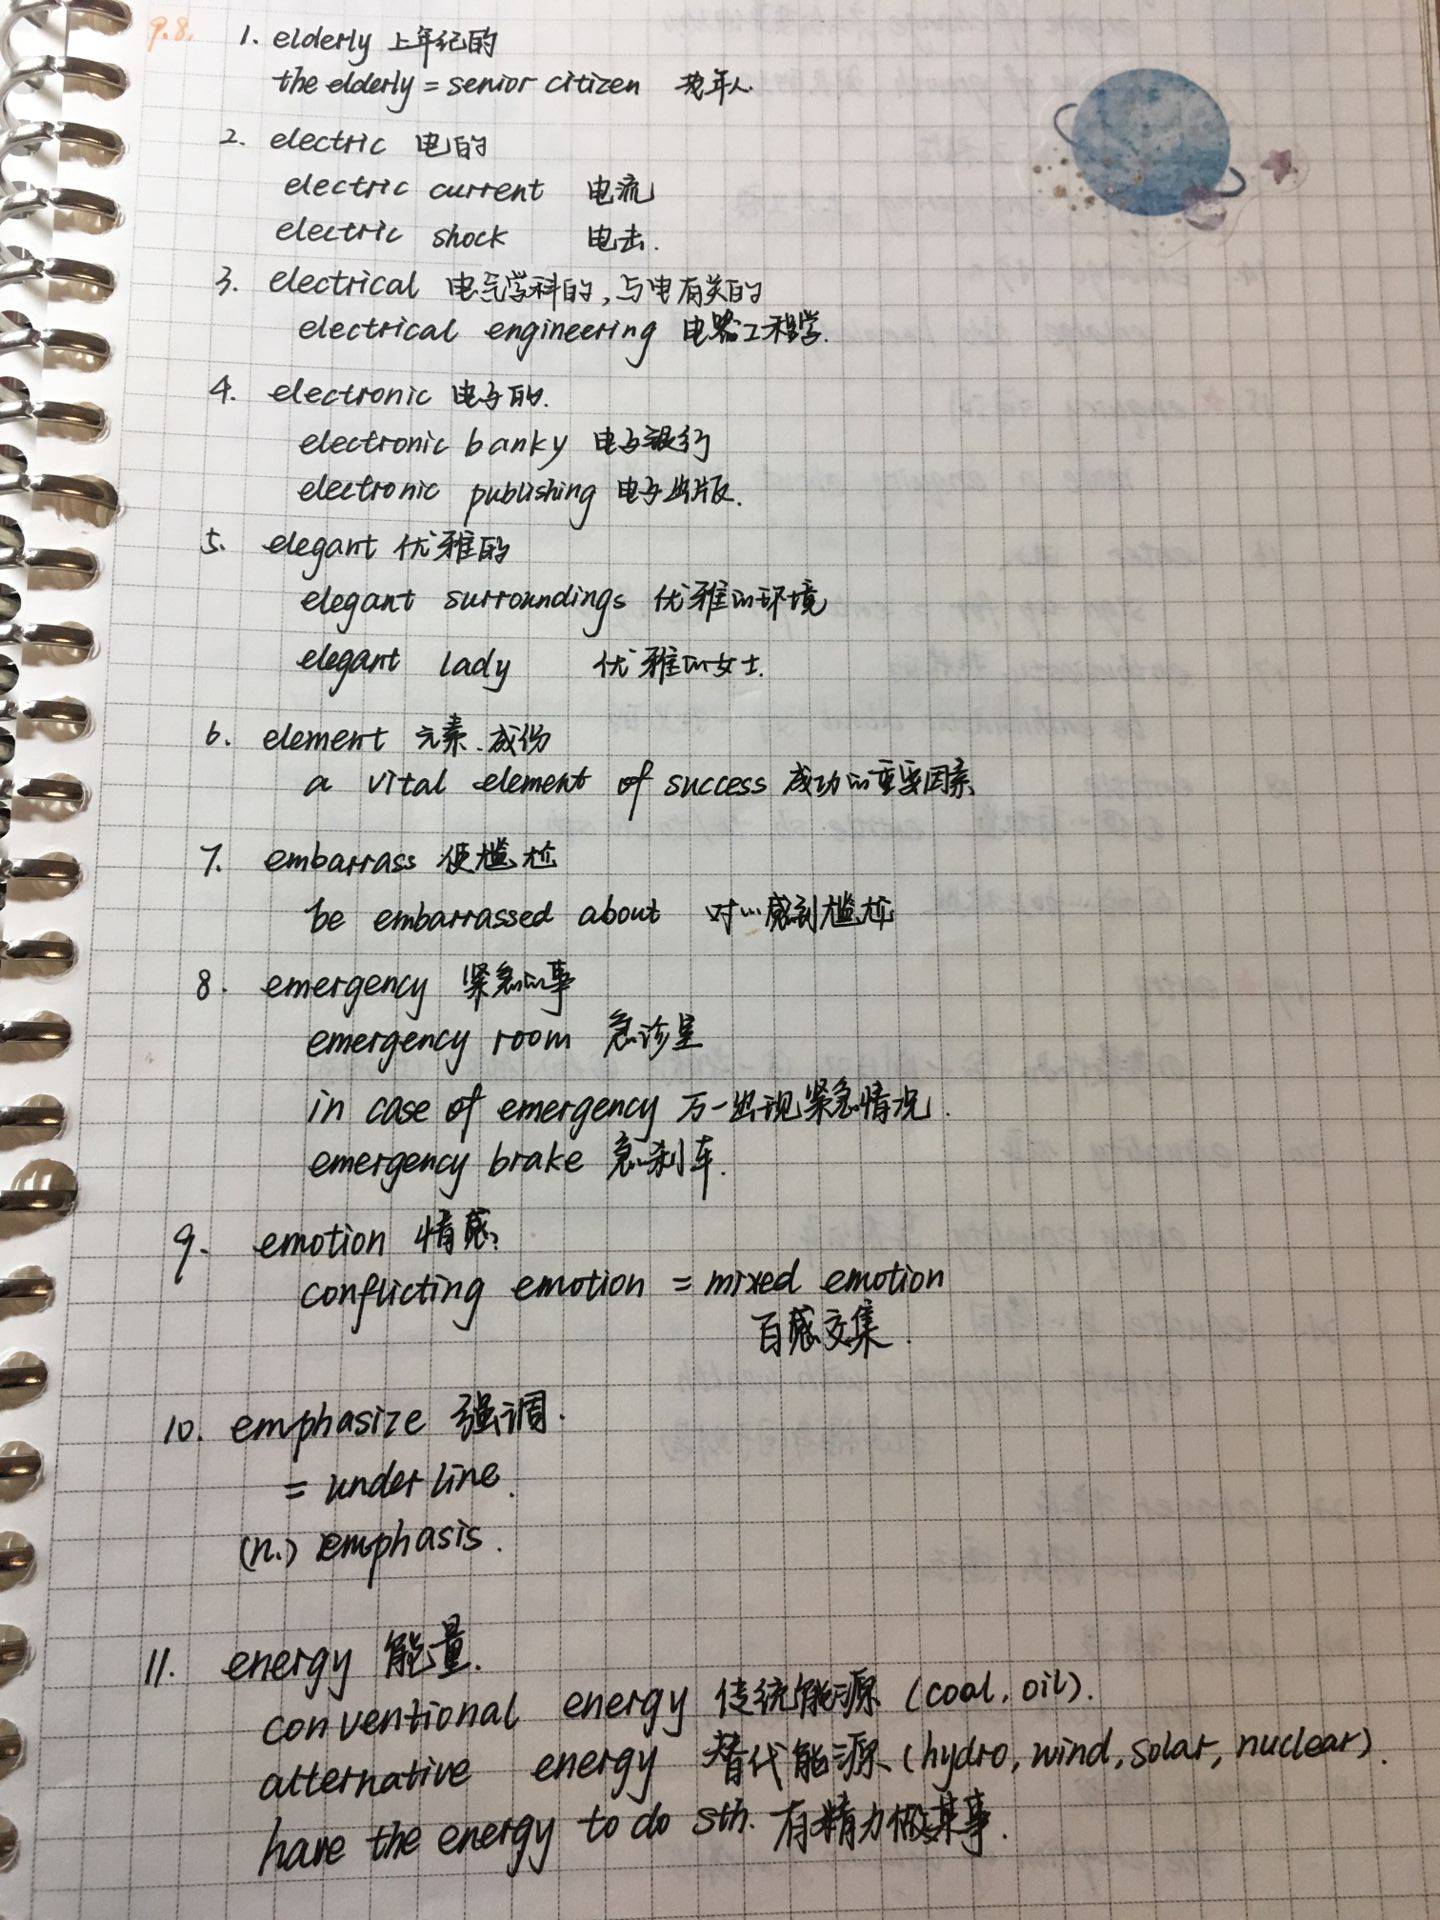 9.8.
1. elderly 上年纪的
the elderly = senior citizen 老年人
2. electric 电的
electric current 电流
electric shock 电击.
3. electrical 电气学科的,与电有关的
electrical engineering 电器工程学.
4. electronic 电子的.
electronic banky 电子银行
electronic publishing 电子出版.
5. elegant 优雅的
elegant surroundings 优雅的环境
elegant lady 优雅的女士.
6. element 元素.成份
a vital element of success 成功的重要因素
7. embarrass 使尴尬
be embarrassed about 对…感到尴尬
8. emergency 紧急的事
emergency room 急诊室
in case of emergency 万一出现紧急情况.
emergency brake 急刹车.
9. emotion 情感
conflicting emotion = mixed emotion
百感交集.
10. emphasize 强调.
= underline.
(n.) emphasis.
11. energy 能量.
conventional energy 传统能源 (coal, oil).
alternative energy 替代能源 (hydro, wind, solar, nuclear).
have the energy to do sth. 有精力做某事.